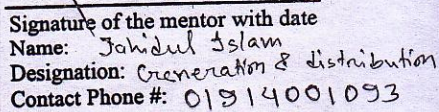 Signature of the mentor with date
Name: Jahidul Islam
Designation: Generation & distribution
Contact Phone #: 01914001093